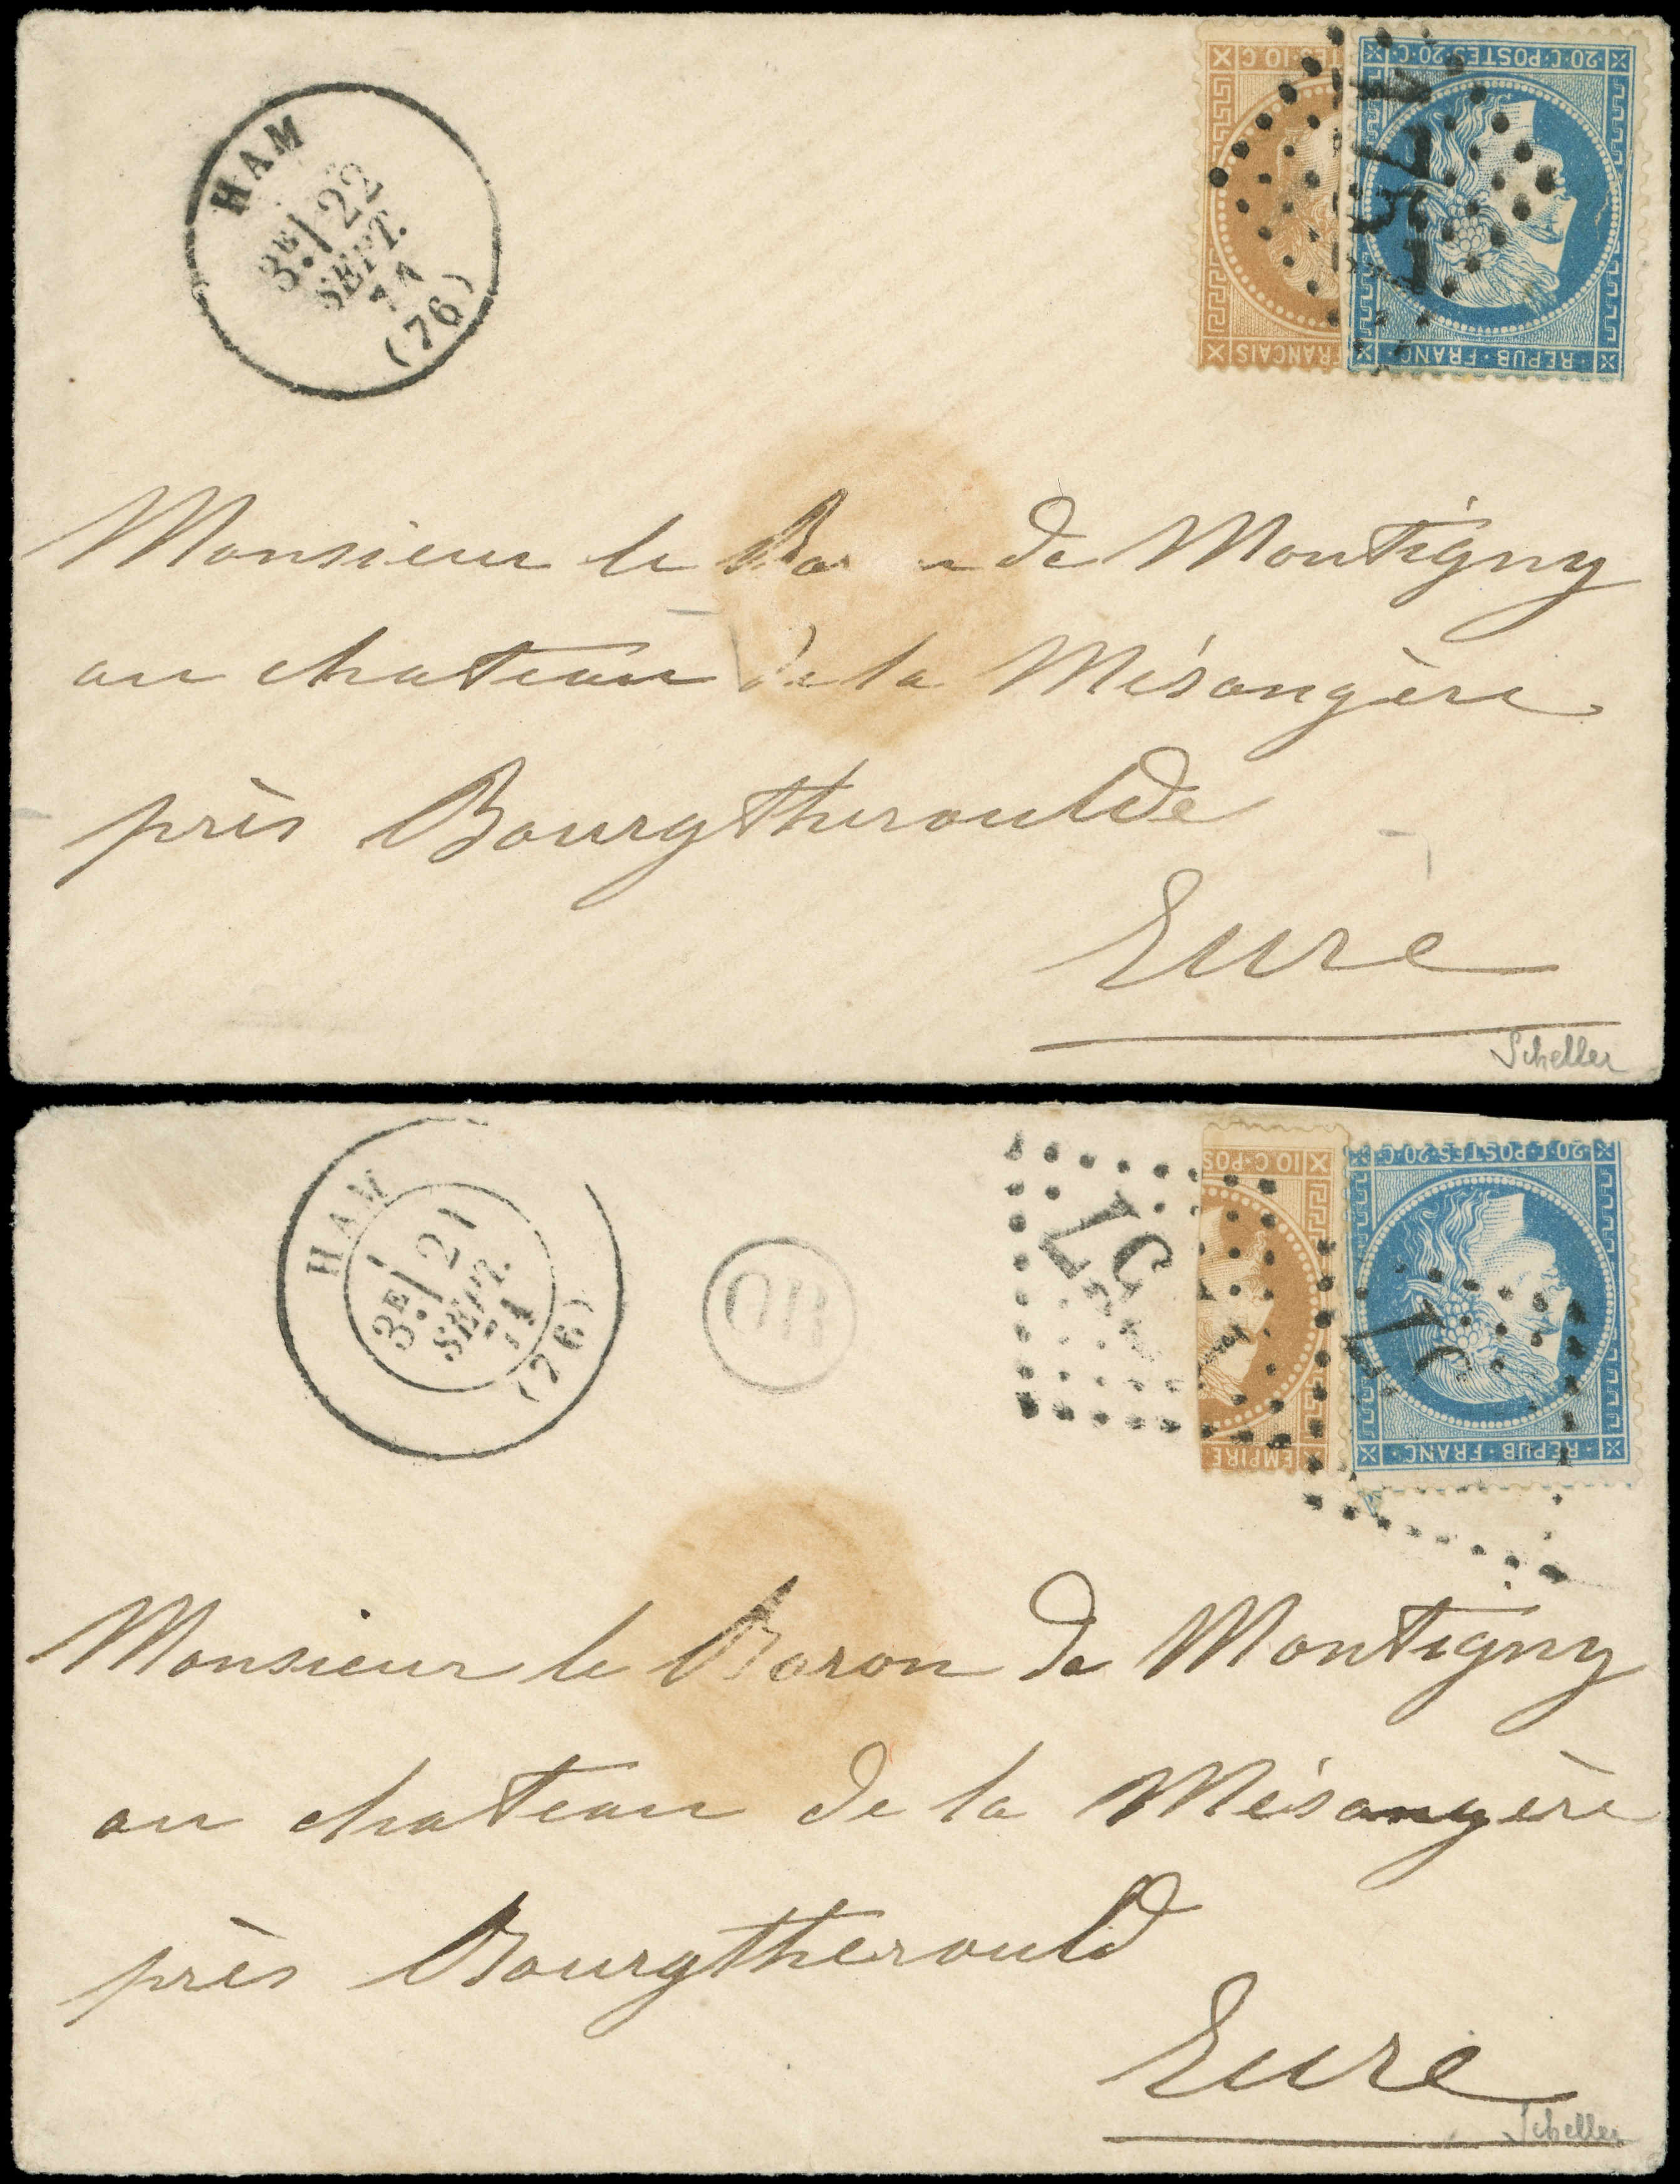 HAM
3E/ 22
SEPT.
71
(76)
20·C·POSTES·20·C
REPUB·FRANC
FRANCAIS
Monsieur le Ba n de Montigny
au chateau de la Mésangère
près Bourgtheroulde
Eure
Scheller
HAM
3E/ 21
SEPT.
71
(76)
OR
10·C·POS
EMPIRE
20·C·POSTES·20·C
REPUB·FRANC
Monsieur le Baron de Montigny
au chateau de la Mésangère
près Bourgtherould
Eure
Scheller